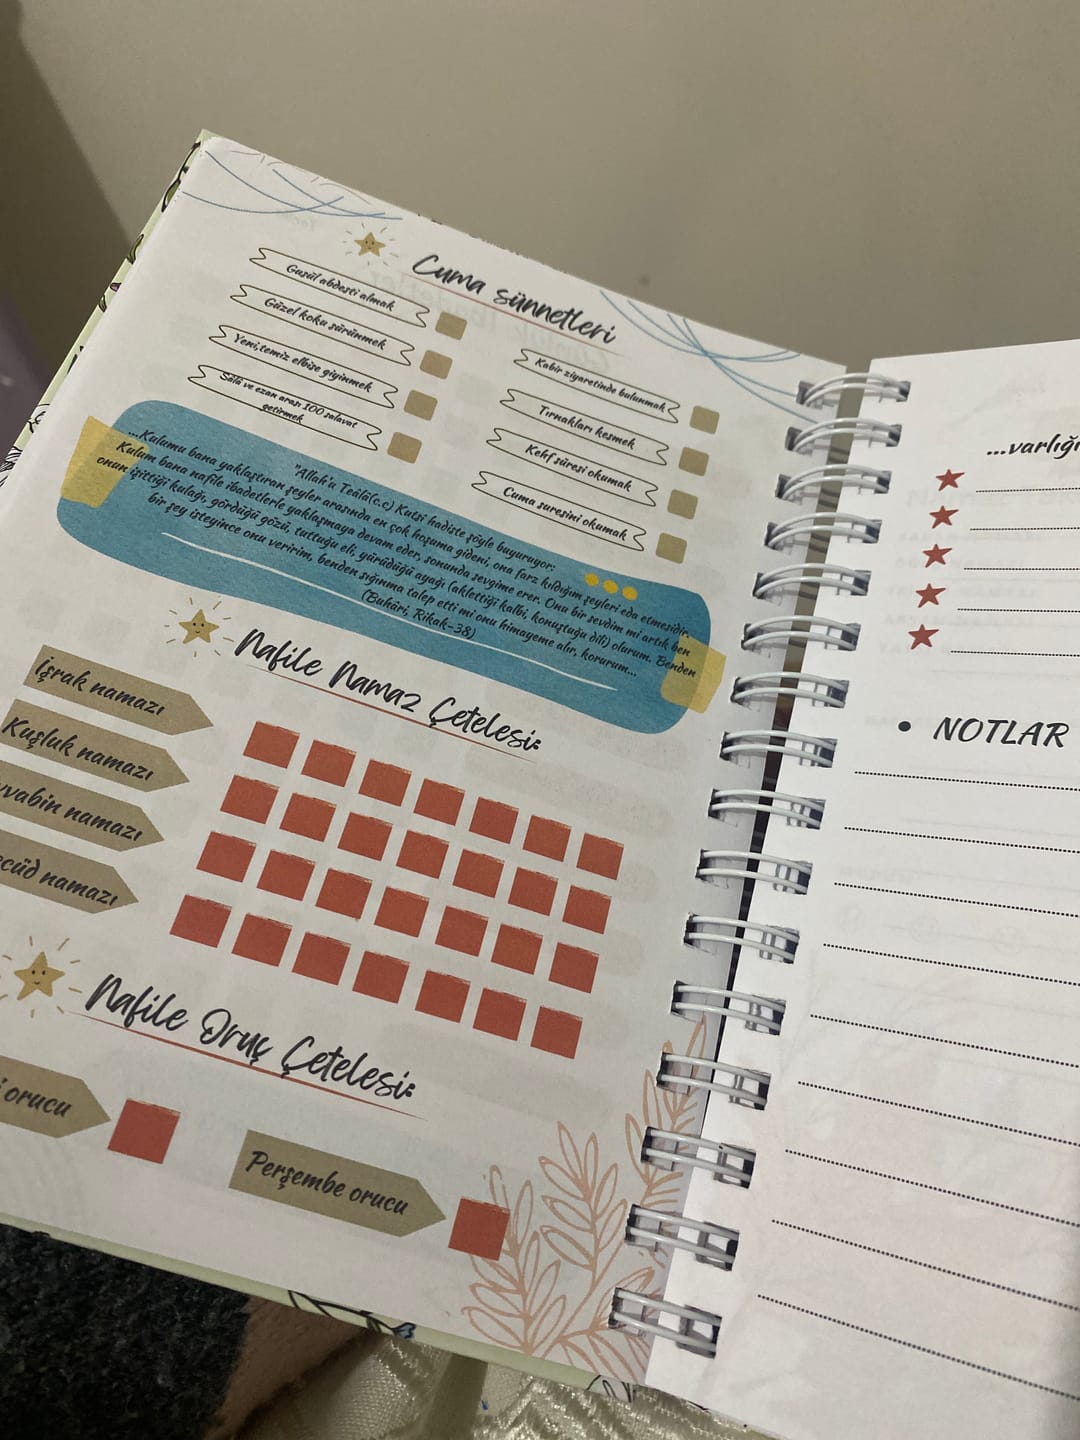 Cuma sünnetleri
Gusül abdesti almak
Güzel koku sürünmek
Yeni,temiz elbise giyinmek
Salâ ve ezan arası 100 salavat
getirmek
Kabir ziyaretinde bulunmak
Tırnakları kesmek
Kehf sûresi okumak
Cuma suresini okumak
"Allah'u Teâlâ(c.c) Kutsi hadiste şöyle buyuruyor:
...Kulumu bana yaklaştıran şeyler arasında en çok hoşuma gideni, ona farz kıldığım şeyleri eda etmesidir.
Kulum bana nafile ibadetlerle yaklaşmaya devam eder, sonunda sevgime erer. Onu bir sevdim mi artık ben
onun işittiği kulağı, gördüğü gözü, tuttuğu eli, yürüdüğü ayağı (aklettiği kalbi, konuştuğu dili) olurum. Benden
bir şey isteyince onu veririm, benden sığınma talep etti mi onu himayeme alır, korurum...
(Buhâri, Rikak-38)
Nafile Namaz Çetelesi:
İşrak namazı
Kuşluk namazı
vvabin namazı
ecüd namazı
Nafile Oruç Çetelesi:
orucu
Perşembe orucu
...varlığı
• NOTLAR